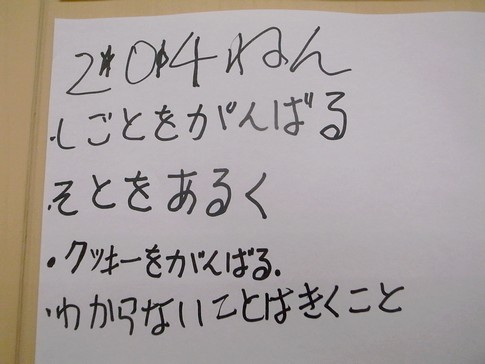 2*0*4ねん
・しごとをがんばる
・そとをあるく
・クッキーをがんばる.
・わからないことはきくこと